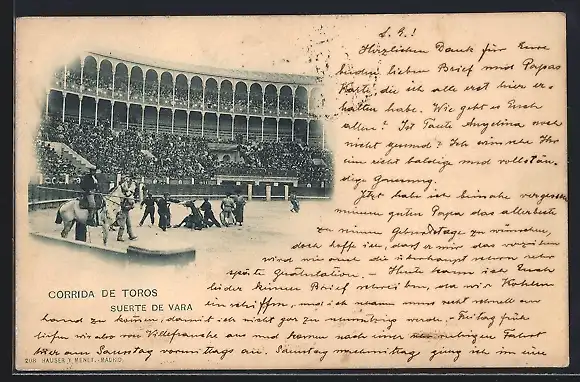 L. E.!
Herzlichen Dank für Eure
beiden lieben Brief und Papas
Karte, die ich alle erst hier er-
halten habe. Wie geht es Euch
allen? Ist Tante Angelina noch
nicht gesund? Ich wünsche Ihr
eine recht baldige und vollstän-
dige Genesung.
Jetzt habe ich beinahe vergessen
meinem guten Papa das allerbeste
zu seinem Geburtstage zu wünschen,
doch hoffe ich, darf er mir das verzeihen
wird wie auch die überhaupt schon sehr
späte Gratulation. – Heute kann ich Euch
leider keinen Brief schreiben, da wir Kohlen
einschiffen, und ich muss mich recht schnell an
Land zu kommen, damit ich nicht gar zu schmutzig werde. – Freitag früh
liefen wir also von Villefranche aus und kamen nach einer ruhigen Fahrt
hier am Samstag vormittags an. Samstag nachmittag ging ich in eine
CORRIDA DE TOROS
SUERTE DE VARA
208 HAUSER Y MENET.-MADRID